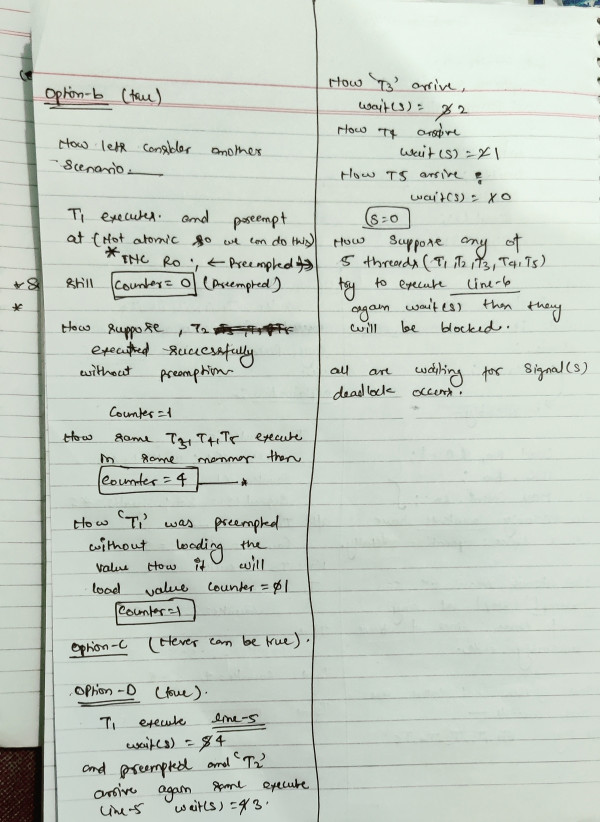 Option-b (true)
Now lets consider another
Scenario.
T1 executes. and preempt
at (Not atomic so we can do this)
* INC R0; ← Preempted →
still counter = 0 (Preempted)
Now suppose, T2
executed successfully
without preemption
Counter=1
Now same T3, T4, T5 execute
in same manner then
Counter = 4
Now 'T1' was preempted
without loading the
value Now it will
load value counter = 0 1
Counter=1
Option-C (Never can be true).
Option-D (true).
T1 execute line-5
wait(s) = 5 4
and preempted and 'T2'
arrive again same execute
Line-5 wait(s) = 4 3.
Now 'T3' arrive,
wait(s) = 3 2
Now T4 arrive
wait(s) = 2 1
Now T5 arrive
wait(s) = 1 0
S=0
Now suppose any of
5 threads (T1, T2, T3, T4, T5)
try to execute Line-6
again wait(s) then they
will be blocked.
all are waiting for Signal(S)
deadlock occurs.